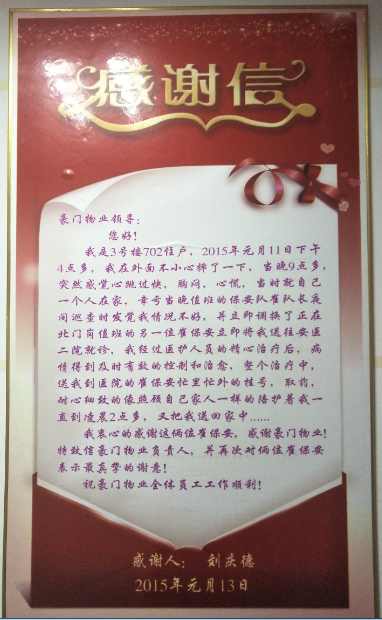 感谢信
豪门物业领导:
您好!
我是3号楼702住户, 2015年元月11日下午
4点多, 我在外面不小心摔了一下, 当晚9点多,
突然感觉心跳过快, 胸闷, 心慌, 当时就自己
一个人在家, 幸亏当晚值班的保安队崔队长夜
间巡查时发觉我情况不好, 并立即调换了正在
北门岗值班的另一位崔保安立即将我送往安医
二院就诊, 我经过医护人员的精心治疗后, 病
情得到及时有效的控制和治愈, 整个治疗中,
送我到医院的崔保安忙里忙外的挂号, 取药,
耐心细致的像照顾自己家人一样的陪护着我一
直到凌晨2点多, 又把我送回家中......
我衷心的感谢这俩位崔保安, 感谢豪门物业!
特致信豪门物业负责人, 并再次对俩位崔保安
表示最真挚的谢意!
祝豪门物业全体员工工作顺利!
感谢人: 刘庆德
2015年元月13日